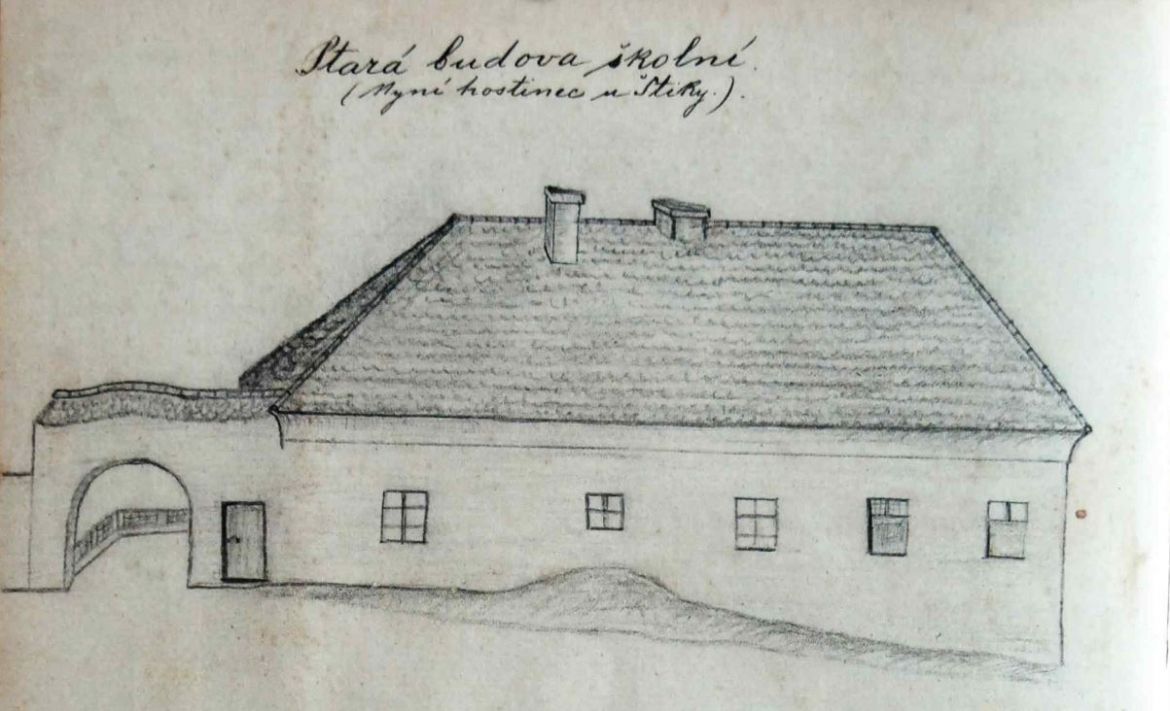 Stará budova školní.
(Nyní hostinec u Štiky.).